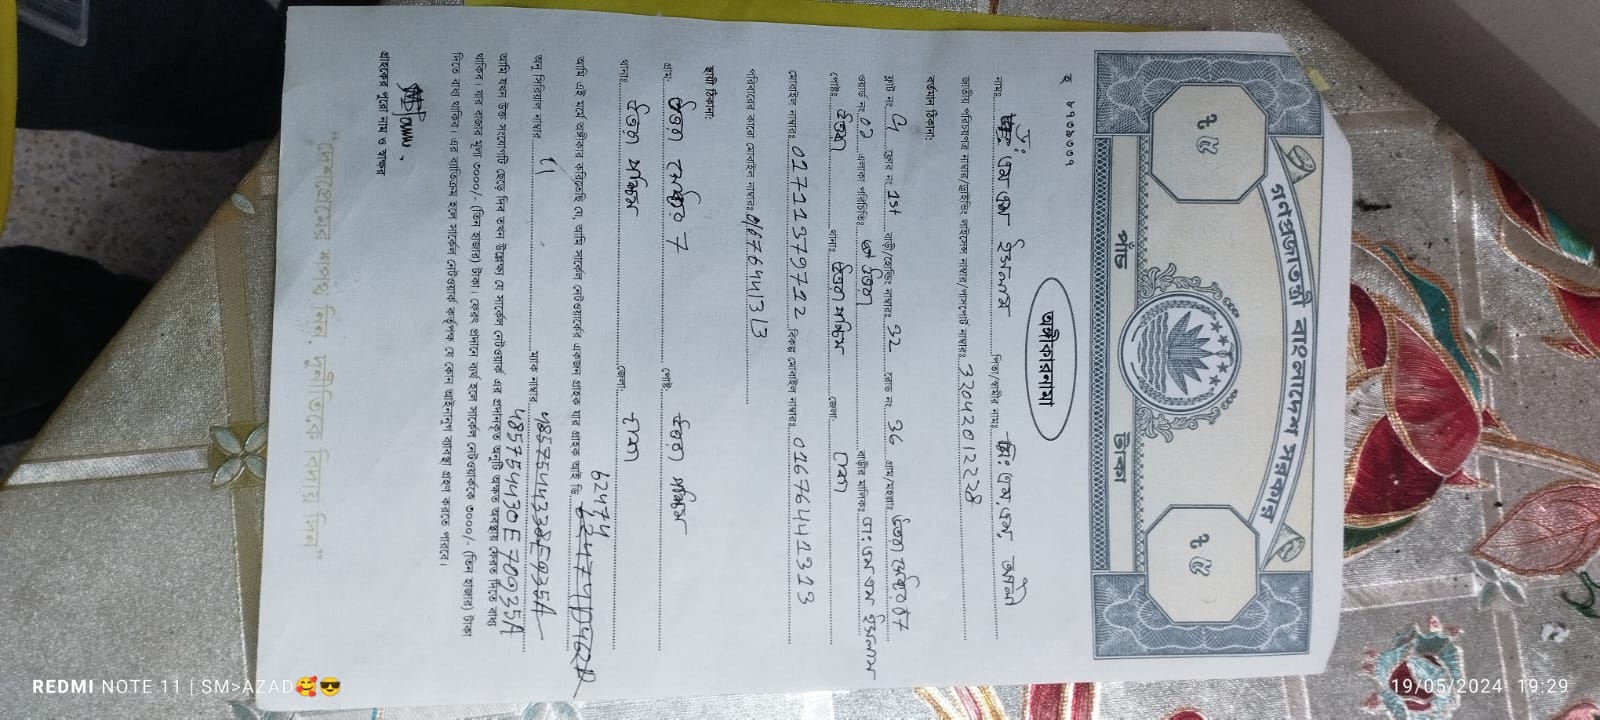 গনপ্রজাতন্ত্রী বাংলাদেশ সরকার
৳ ৫
৳ ৫
পাঁচ টাকা
হ ৮৭৩৯৩৩৭
অঙ্গীকারনামা
নামঃ এম এস ইসলাম পিতা/স্বামীর নামঃ এম, এম, আলী
জাতীয় পরিচয়পত্র নাম্বার/ড্রাইভিং লাইসেন্স নাম্বার/পাসপোর্ট নাম্বারঃ
বর্তমান ঠিকানা:
ফ্লাট নং ফ্লোর নং 1st বাড়ী/হোল্ডিং নাম্বারঃ 32 রোড নং 36 গ্রাম/মহল্লাঃ উত্তরা সেক্টর ৭
ওয়ার্ড নং 01 এলাকা পরিচিতিঃ উত্তরা বাড়ীর মালিকঃ এম এস ইসলাম
পোষ্টঃ উত্তরা থানাঃ উত্তরা পশ্চিম জেলা ঢাকা
মোবাইল নাম্বারঃ 01711379712 বিকল্প মোবাইল নাম্বারঃ 01676441313
পরিবারের কারো মোবাইল নাম্বারঃ 01676441313
স্থায়ী ঠিকানা:
গ্রাম: উত্তরা সেক্টর 7 পোষ্ট: উত্তরা পশ্চিম
থানাঃ উত্তরা পশ্চিম জেলা: ঢাকা
62474
আমি এই মর্মে অঙ্গীকার করিতেছি যে, আমি সার্কেল নেটওয়ার্কের একজন গ্রাহক যার গ্রাহক আই ডি
অনু সিরিয়াল নাম্বার ম্যাক নাম্বার
4857544430E70935A
আমি যখন উক্ত সংযোগটি ছেড়ে দিব তখন উল্লেক্ষ্য যে সার্কেল নেটওয়ার্ক এর প্রদানকৃত অনুটি অক্ষত অবস্থায় ফেরত দিতে বাধ্য
থাকিব। যার বাজার মূল্য ৩০০০/- (তিন হাজার) টাকা। ফেরৎ প্রদানে ব্যর্থ হলে সার্কেল নেটওয়ার্ককে ৩০০০/- (তিন হাজার) টাকা
দিতে বাধ্য থাকিব। এর ব্যতিক্রম হলে সার্কেল নেটওয়ার্ক কর্তৃপক্ষ যে কোন আইনানুগ ব্যবস্থা গ্রহণ করতে পারবে।
গ্রাহকের পুরো নাম ও স্বাক্ষর
"দেশপ্রেমের শপথ নিন, দুর্নীতিকে বিদায় দিন"
REDMI NOTE 11 | SM>AZAD🥰😎
19/05/2024 19:29